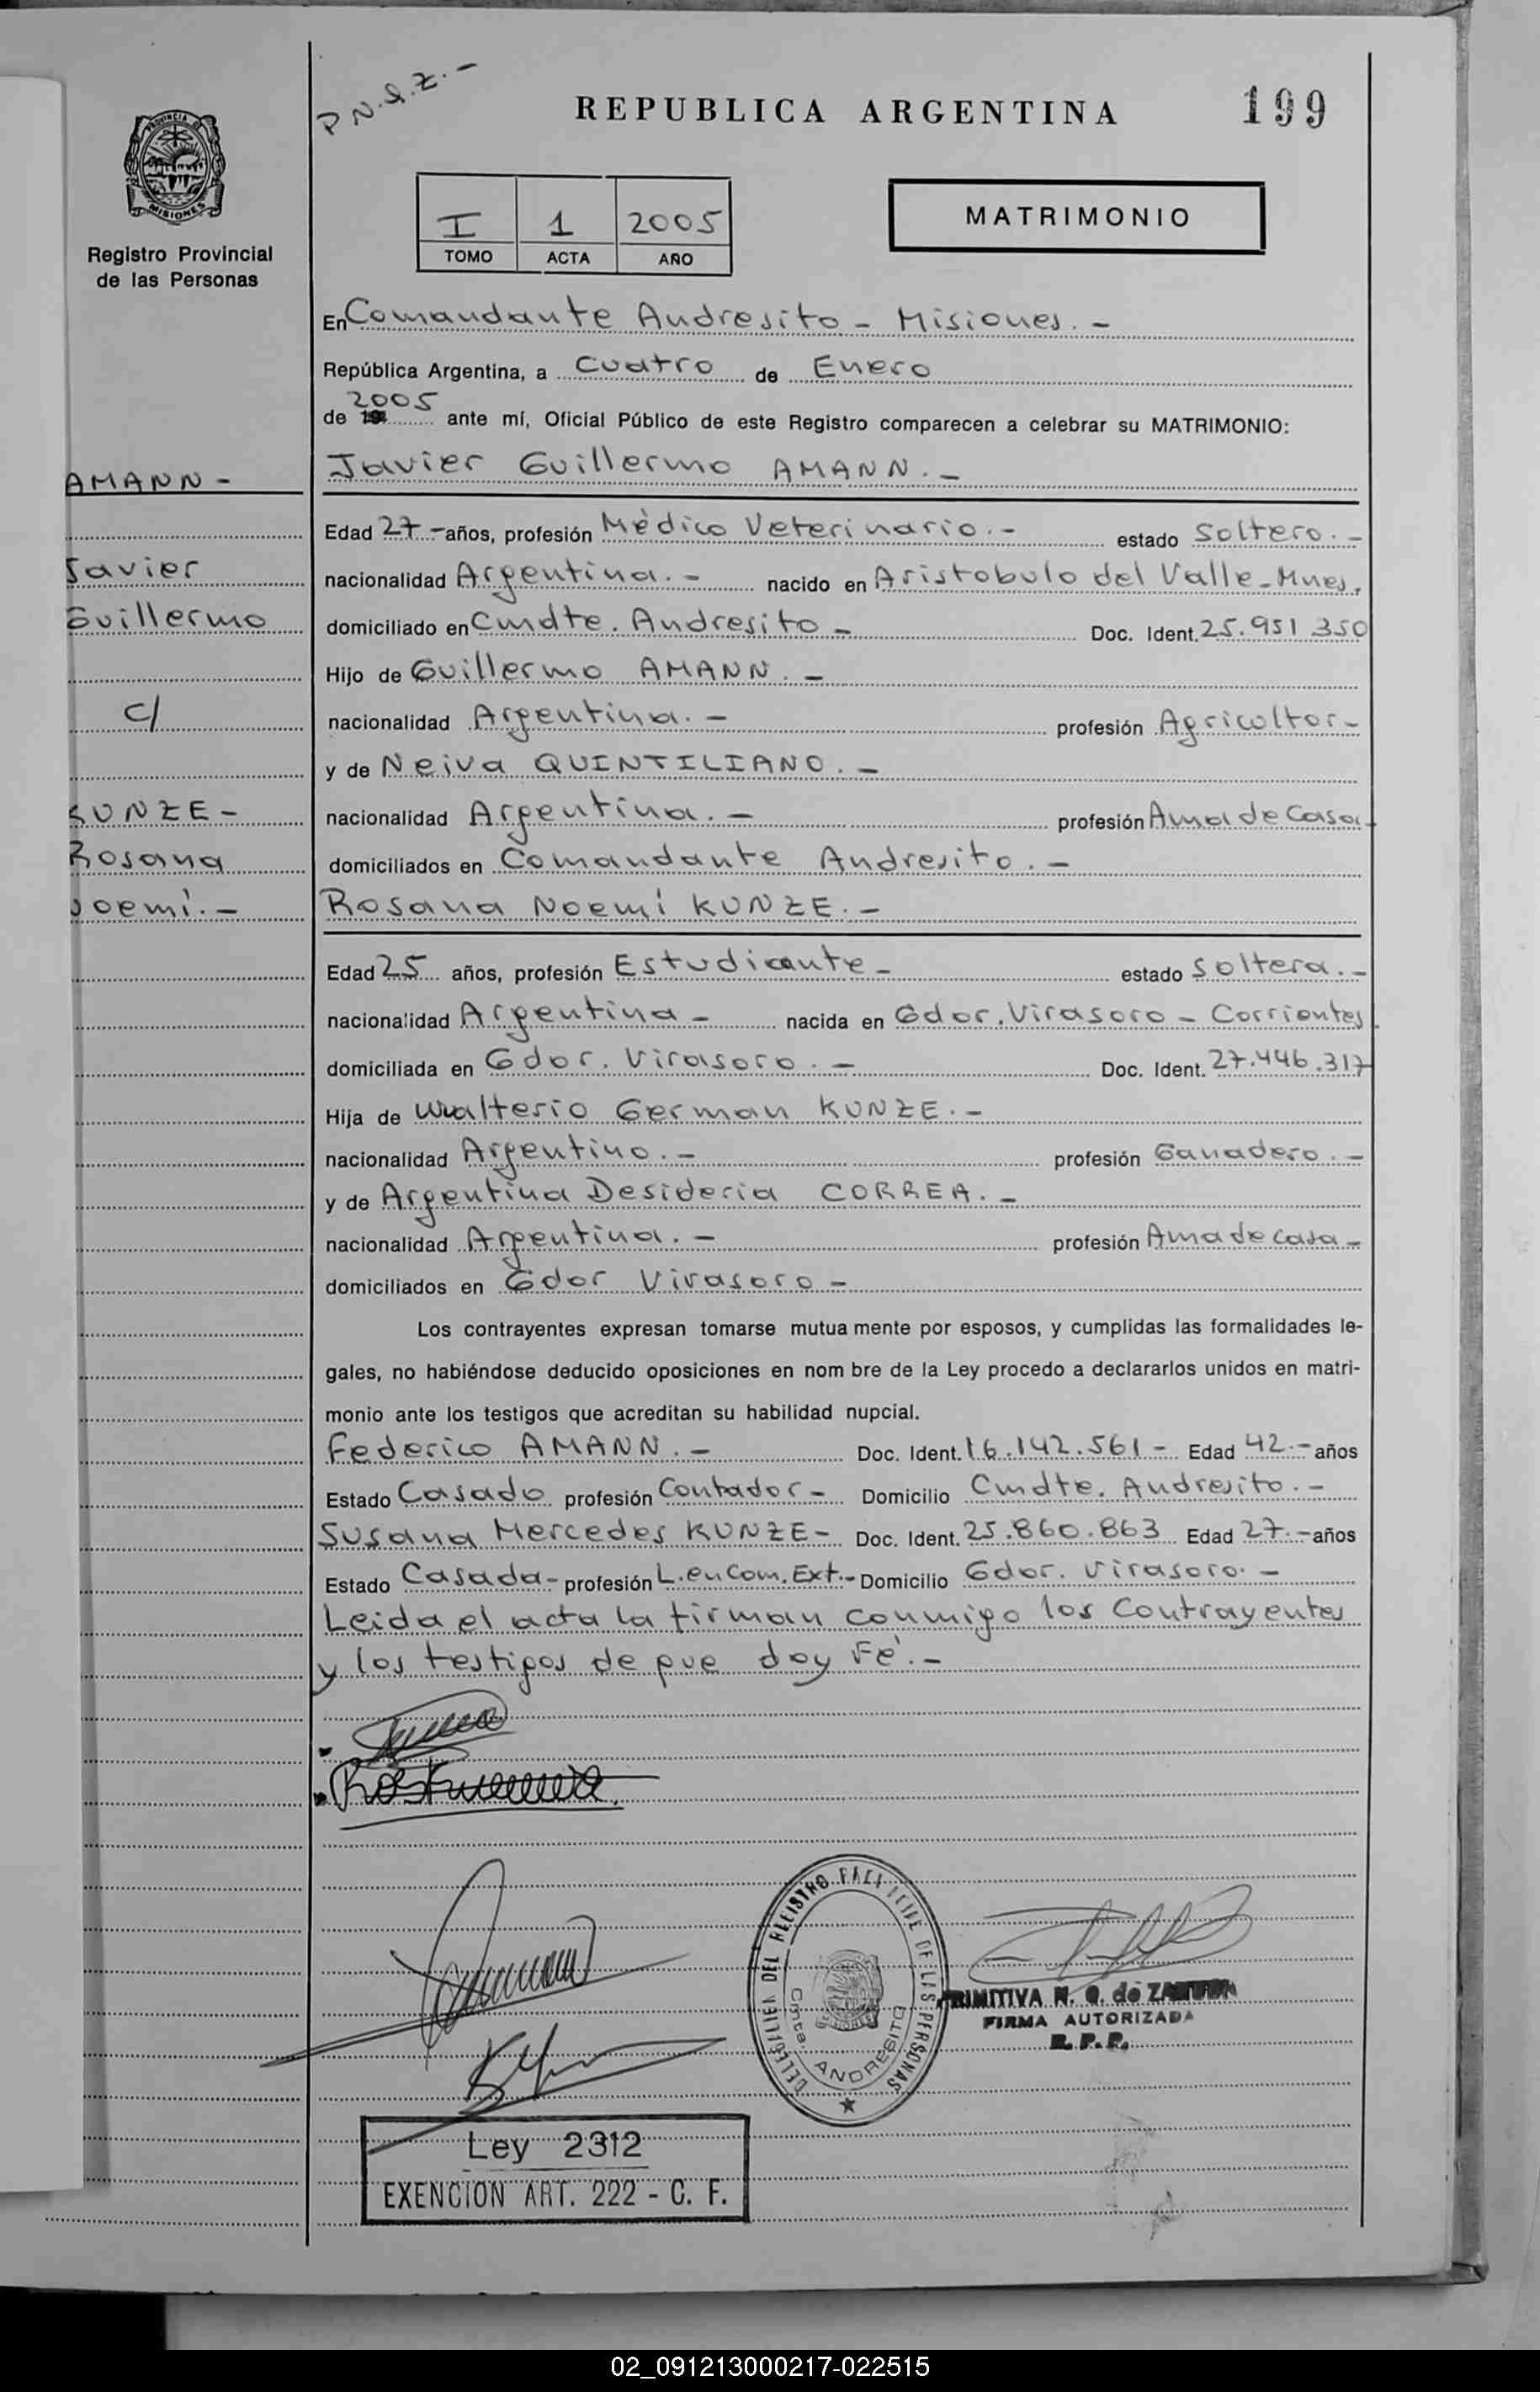 P.N.Q.Z.-
REPUBLICA ARGENTINA
199
PROVINCIA DE
MISIONES
Registro Provincial
de las Personas
I 1 2005
TOMO ACTA AÑO
MATRIMONIO
En Comandante Andresito - Misiones.-
República Argentina, a Cuatro de Enero
de 2005 ante mí, Oficial Público de este Registro comparecen a celebrar su MATRIMONIO:
AMANN -
Javier
Guillermo
c/
KUNZE -
Rosana
Noemí.-
Javier Guillermo AMANN.-
Edad 27.- años, profesión Médico Veterinario.- estado Soltero.-
nacionalidad Argentina.- nacido en Aristobulo del Valle-Mnes.
domiciliado en Cmdte. Andresito - Doc. Ident. 25.951.350
Hijo de Guillermo AMANN.-
nacionalidad Argentina.- profesión Agricoltor-
y de Neiva QUINTILIANO.-
nacionalidad Argentina.- profesión Ama de Casa-
domiciliados en Comandante Andresito.-
Rosana Noemí KUNZE.-
Edad 25 años, profesión Estudiante- estado Soltera.-
nacionalidad Argentina - nacida en Gdor. Virasoro - Corrientes.
domiciliada en Gdor. Virasoro.- Doc. Ident. 27.446.317
Hija de Walterio German KUNZE.-
nacionalidad Argentino.- profesión Ganadero.-
y de Argentina Desideria CORREA.-
nacionalidad Argentina.- profesión Ama de casa-
domiciliados en Gdor Virasoro-
Los contrayentes expresan tomarse mutua mente por esposos, y cumplidas las formalidades le-
gales, no habiéndose deducido oposiciones en nom bre de la Ley procedo a declararlos unidos en matri-
monio ante los testigos que acreditan su habilidad nupcial.
Federico AMANN.- Doc. Ident. 16.142.561- Edad 42.- años
Estado Casado profesión Contador- Domicilio Cmdte. Andresito.-
Susana Mercedes KUNZE- Doc. Ident. 25.860.863 Edad 27.- años
Estado Casada- profesión L.en Com. Ext.- Domicilio Gdor. Virasoro.-
Leida el acta la firman conmigo los Contrayentes
y los testigos de que doy Fé.-
DELEGACION DEL REGISTRO PROVINCIAL DE LAS PERSONAS
Cmte. ANDRESITO
PRIMITIVA N. Q. de
FIRMA AUTORIZADA
R. P. P.
Ley 2312
EXENCION ART. 222 - C. F.
02_091213000217-022515